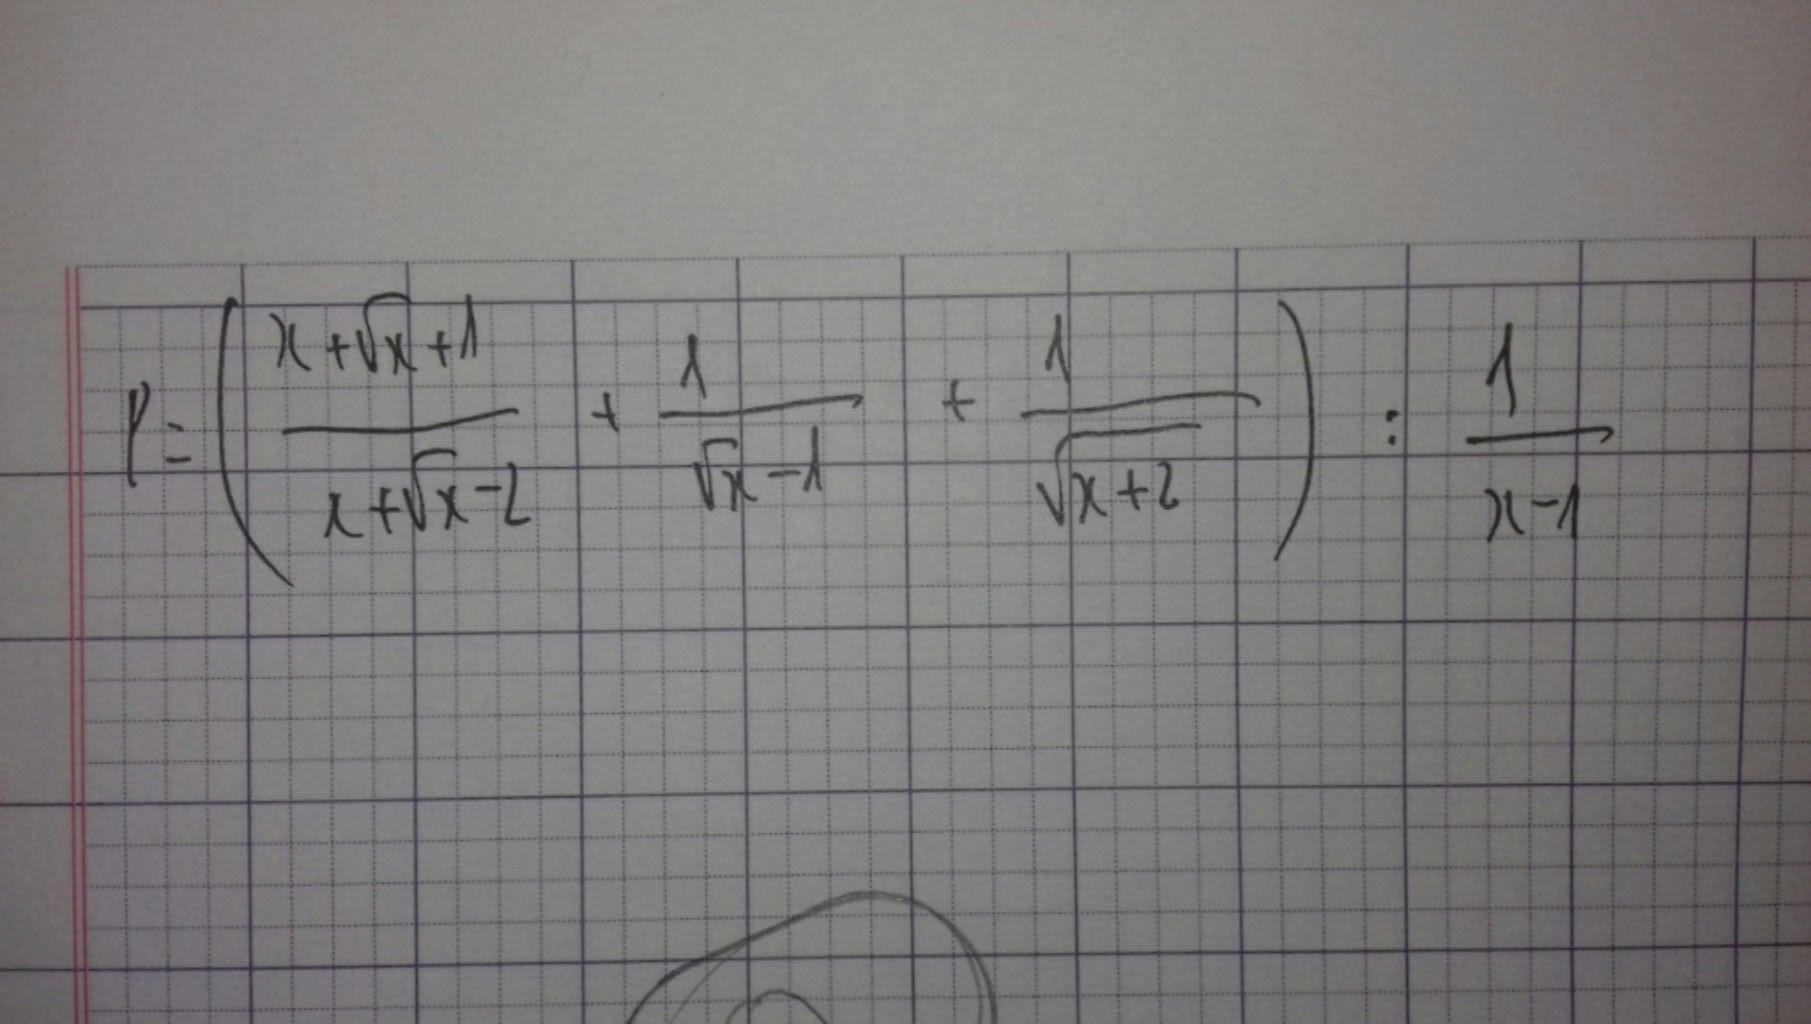 P = ( \frac{x+\sqrt{x}+1}{x+\sqrt{x}-2} + \frac{1}{\sqrt{x}-1} + \frac{1}{\sqrt{x+2}} ) : \frac{1}{x-1}